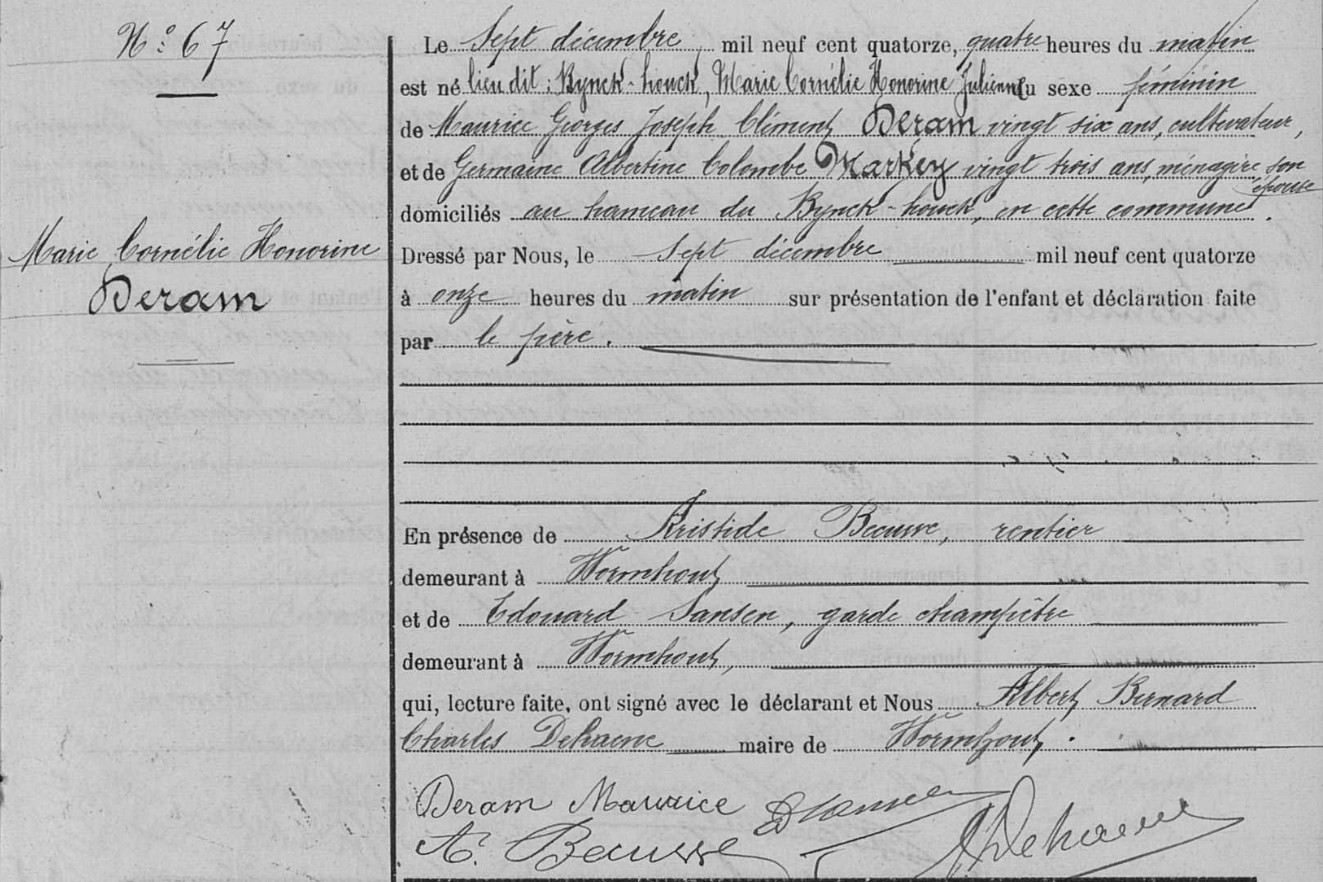 N° 67
Marie Cornélie Honorine
Deram
Le Sept décembre mil neuf cent quatorze, quatre heures du matin
est né lieu dit : Rynck-houck, Marie Cornélie Honorine Julienne du sexe féminin
de Maurice Georges Joseph Clément Deram vingt six ans, cultivateur,
et de Germaine Albertine Colombe Markey vingt trois ans, ménagère son
épouse
domiciliés au hameau du Rynck-houck, en cette commune.
Dressé par Nous, le Sept décembre mil neuf cent quatorze
à onze heures du matin sur présentation de l'enfant et déclaration faite
par le père.
En présence de Aristide rentier
demeurant à Wormhout
et de Edouard Sansen, garde champêtre
demeurant à Wormhout,
qui, lecture faite, ont signé avec le déclarant et Nous Albert Bernard
Charles Dehaene maire de Wormhout.
Deram Maurice
A. Dehaene